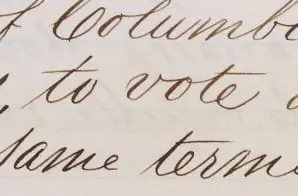 of Columb
to vote
same terms